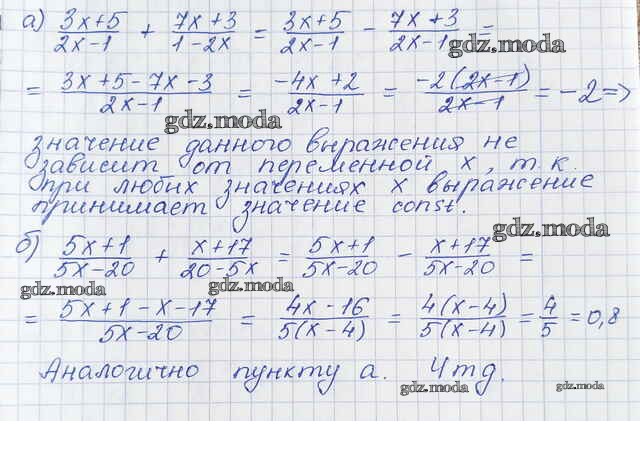 а) (3x+5)/(2x-1) + (7x+3)/(1-2x) = (3x+5)/(2x-1) - (7x+3)/(2x-1) =
gdz.moda
= (3x+5-7x-3)/(2x-1) = (-4x+2)/(2x-1) = (-2(2x-1))/(2x-1) = -2 =>
gdz.moda
значение данного выражения не
зависит от переменной x, т.к.
при любых значениях x выражение
принимает значение const.
gdz.moda
б) (5x+1)/(5x-20) + (x+17)/(20-5x) = (5x+1)/(5x-20) - (x+17)/(5x-20) =
gdz.moda gdz.moda
= (5x+1-x-17)/(5x-20) = (4x-16)/(5(x-4)) = (4(x-4))/(5(x-4)) = 4/5 = 0,8
Аналогично пункту а. Чтд.
gdz.moda gdz.moda